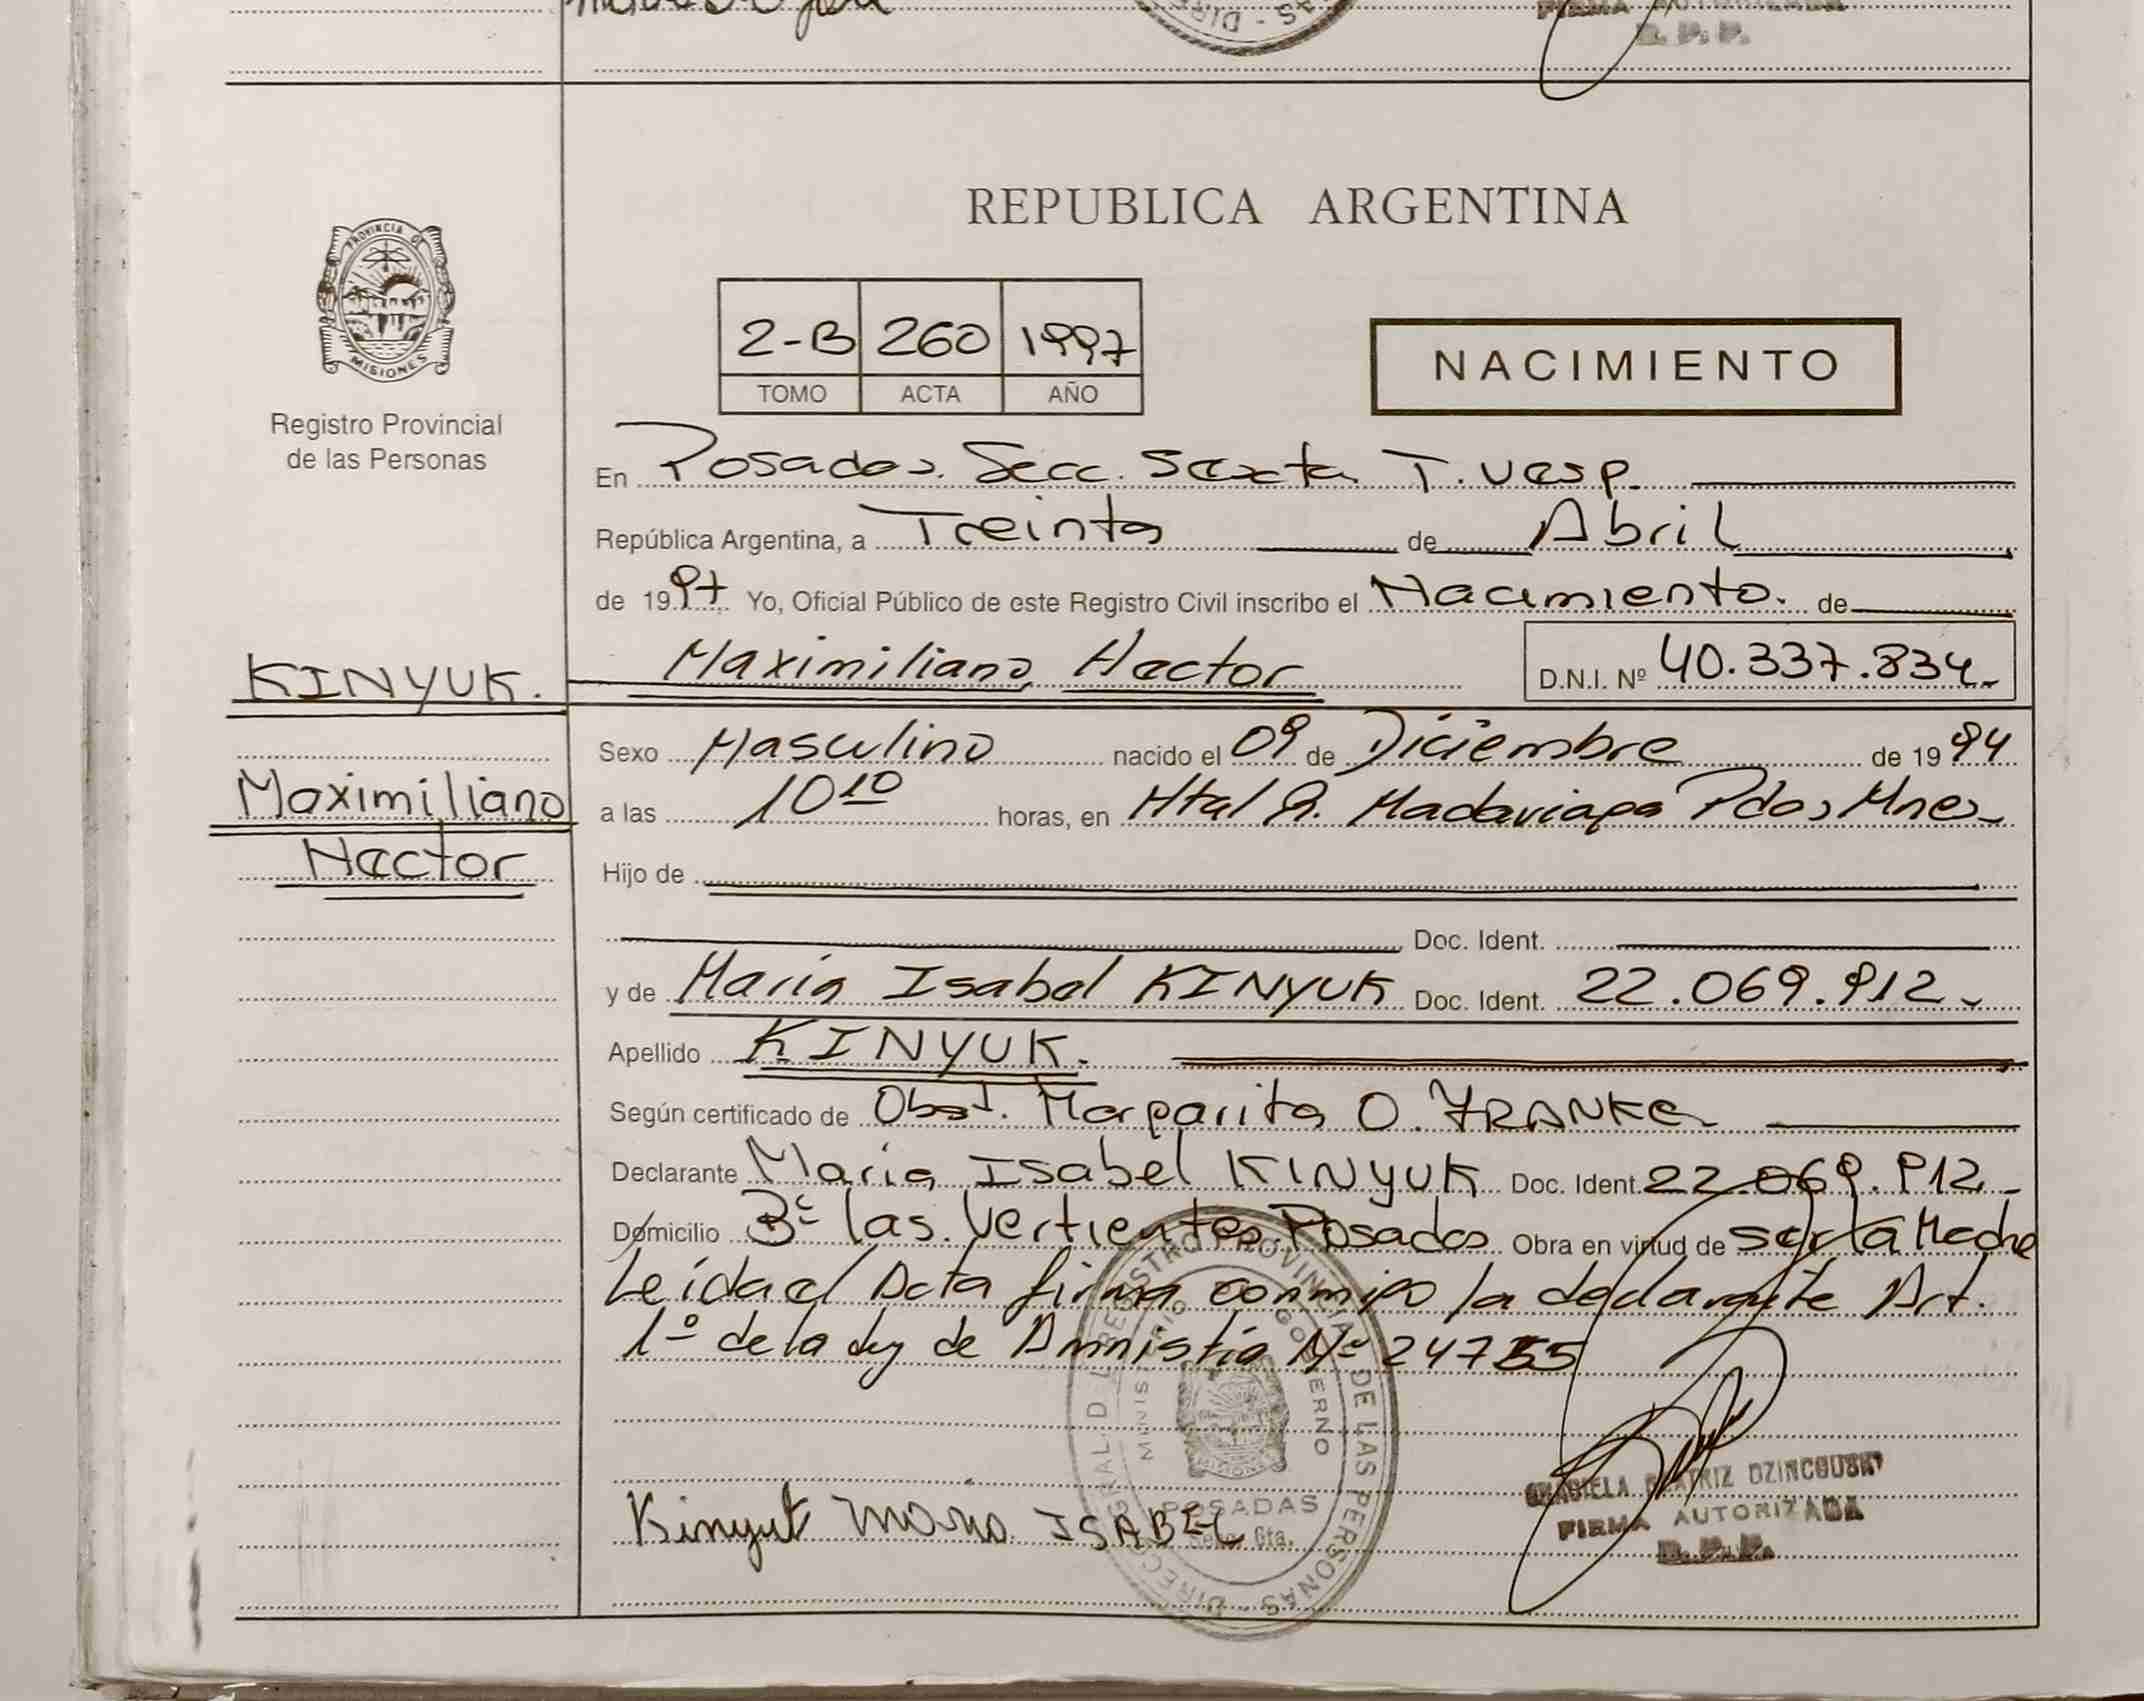 FIRMA AUTORIZADA
R. P. P.
PROVINCIA DE
MISIONES
Registro Provincial
de las Personas
REPUBLICA ARGENTINA
2-B 260 1997
TOMO ACTA AÑO
NACIMIENTO
En Posadas. Secc. Sexta T. Vesp.
República Argentina, a Treinta de Abril
de 1997. Yo, Oficial Público de este Registro Civil inscribo el Nacimiento. de
KINYUK. Maximiliano Hector D.N.I. Nº 40.337.834.-
Sexo Masculino nacido el 09 de Diciembre de 1994
Maximiliano a las 10 10 horas, en Htal R. Madariaga Pdas Mnes-
Hector
Hijo de
Doc. Ident.
y de Maria Isabel KINYUK Doc. Ident. 22.069.912.-
Apellido KINYUK.
Según certificado de Obst. Margarita O. FRANKE
Declarante Maria Isabel KINYUK Doc. Ident. 22.069.912-
Domicilio Bº las Vertientes Posadas Obra en virtud de ser la Madre
Leida el Acta firma conmigo la declarante Art.
1º de la ley de Amnistia Nº 24755
DIRECC GRAL. DEL REGISTRO PROVINCIAL DE LAS PERSONAS
MINISTERIO GOBIERNO
MISIONES
POSADAS
Secc. 6ta.
Kinyuk Maria ISABEL
GRACIELA BEATRIZ DZINCOUSKI
FIRMA AUTORIZADA
R. P. P.